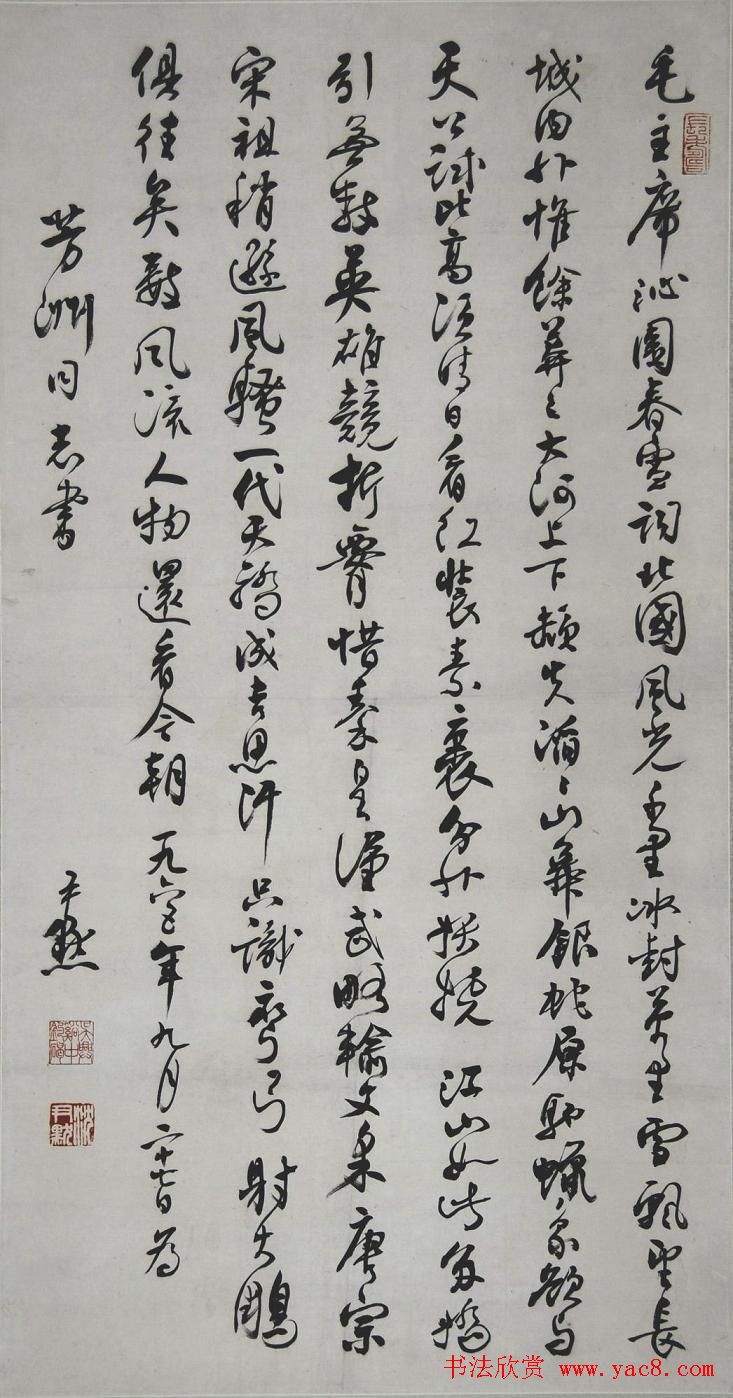 毛主席沁園春雪詞北國風光千里冰封萬里雪飄望長
城內外惟餘莽〻大河上下頓失滔〻山舞銀蛇原馳蠟象欲與
天公試比高須晴日看紅裝素裹分外妖嬈 江山如此多嬌
引無數英雄競折腰惜秦皇漢武略輸文采唐宗
宋祖稍遜風騷一代天驕成吉思汗只識彎弓射大鵰
俱往矣數風流人物還看今朝 一九六五年九月二十七日為
芳洲同志書 尹默
沈尹默
书法欣赏 www.yac8.com